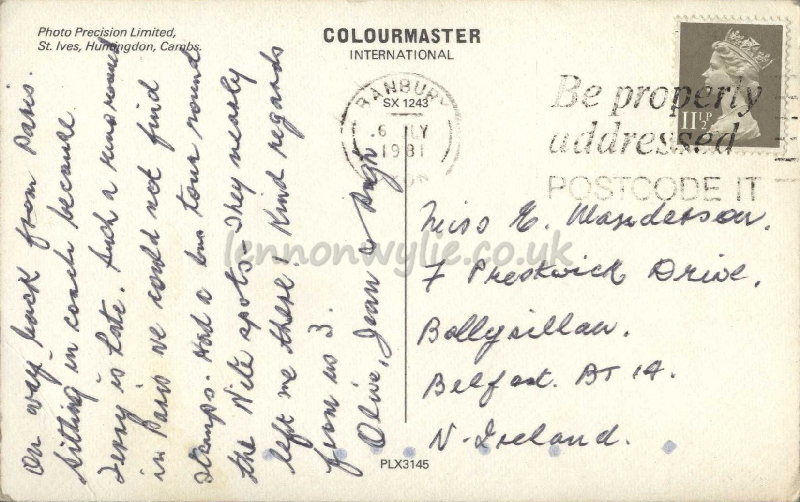 Photo Precision Limited,
St. Ives, Huntingdon, Cambs.
COLOURMASTER
INTERNATIONAL
SX 1243
BANBURY
6 JLY
1981
OXON
Be properly
addressed
POSTCODE IT
11½P
On way back from Paris.
Sitting in coach because
Ferry is late. Such a run round
in Paris we could not find
stamps. Had a bus tour round
the Nite spots - They nearly
left me there! Kind regards
from us 3.
Olive, Jean & Hugh
Miss E. Manderson.
7 Prestwick Drive.
Ballysillan.
Belfast. BT 14.
N-Ireland.
lennonwylie.co.uk
PLX3145